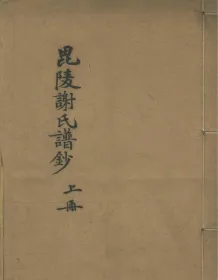 毘陵謝氏譜鈔
上冊